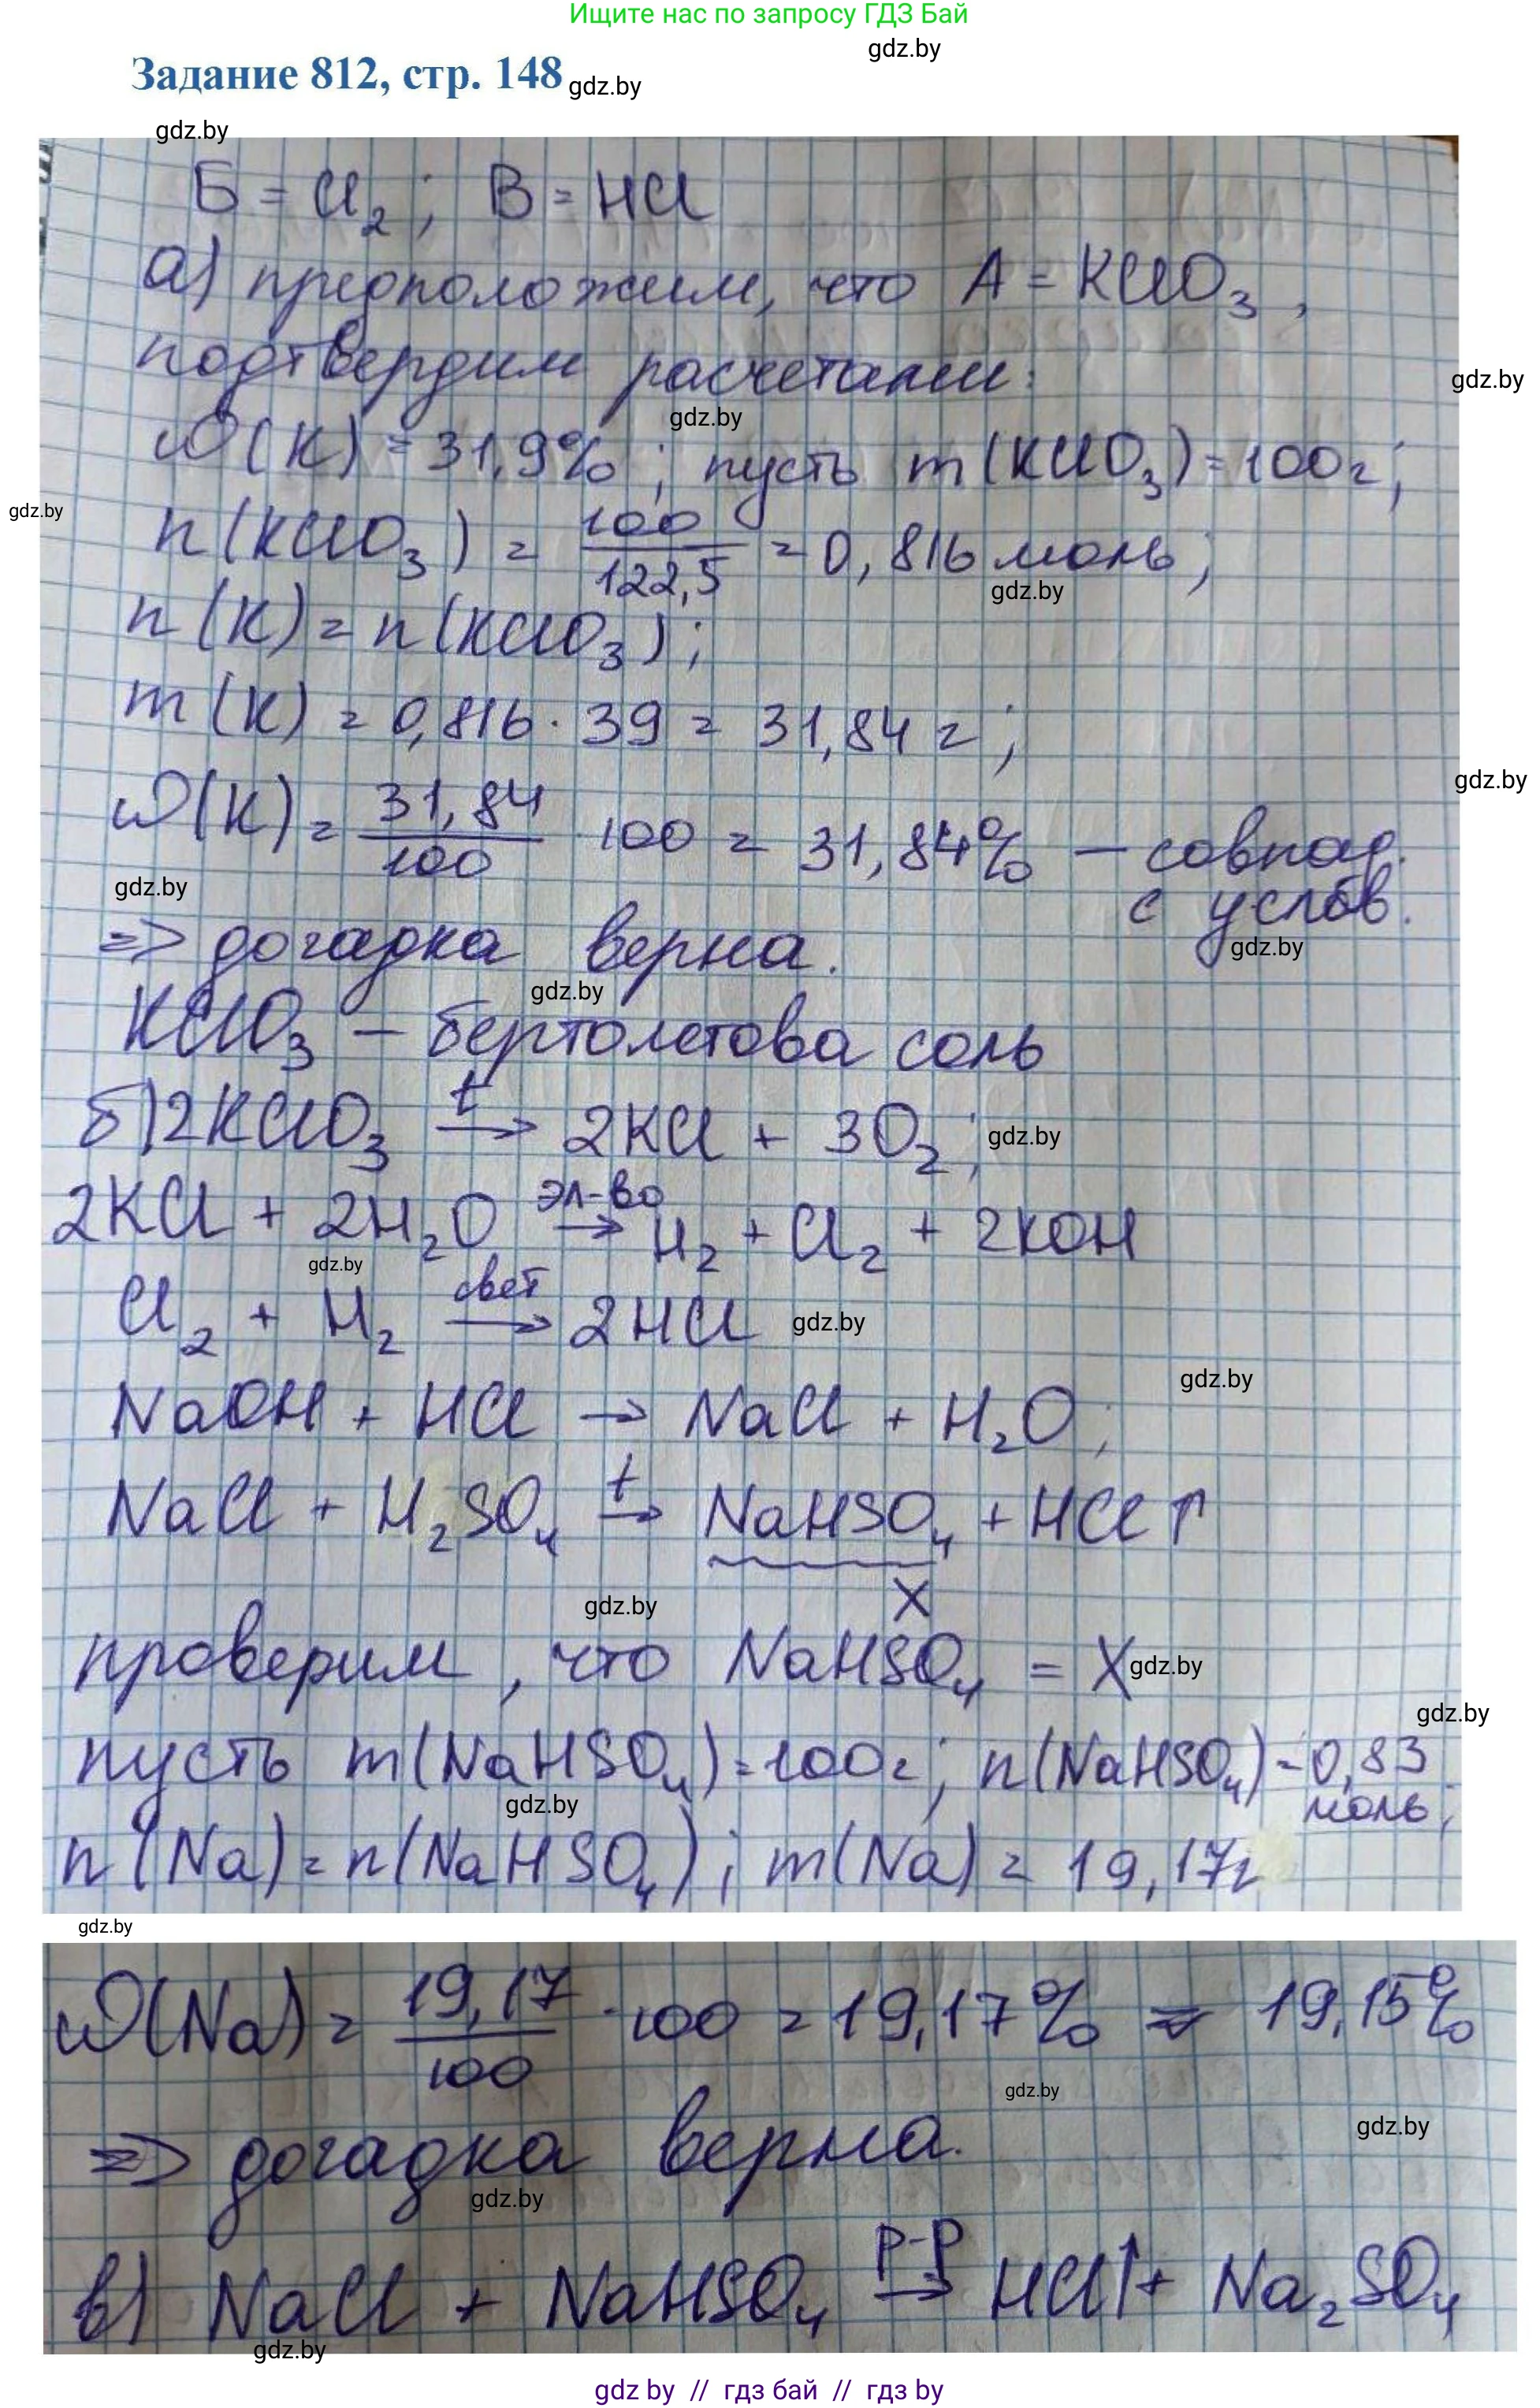 Ищите нас по запросу ГДЗ Бай
gdz.by
Задание 812, стр. 148 gdz.by
gdz.by
Б = Cl₂ ; В = HCl
а) предположим, что А = KClO₃ ,
подтвердим расчетами:
gdz.by
gdz.by
ω(K) = 31,9% ; пусть m(KClO₃) = 100г ;
gdz.by
n(KClO₃) = 100/122,5 = 0,816 моль ;
gdz.by
n(K) = n(KClO₃) ;
m(K) = 0,816 · 39 = 31,84 г ;
gdz.by
ω(K) = 31,84/100 · 100 = 31,84% – совпад.
с услов.
gdz.by
gdz.by
=> догадка верна.
gdz.by
KClO₃ – бертолетова соль
б) 2KClO₃ t→ 2KCl + 3O₂ ; gdz.by
2KCl + 2H₂O эл-во→ H₂ + Cl₂ + 2KOH
gdz.by
Cl₂ + H₂ свет→ 2HCl gdz.by
gdz.by
NaOH + HCl → NaCl + H₂O ;
NaCl + H₂SO₄ t→ NaHSO₄ + HCl ↑
X
gdz.by
проверим, что NaHSO₄ = X gdz.by
gdz.by
пусть m(NaHSO₄) = 100г ; n(NaHSO₄) = 0,83
моль ;
gdz.by
n(Na) = n(NaHSO₄) ; m(Na) = 19,17г
gdz.by
ω(Na) = 19,17/100 · 100 = 19,17% = 19,15%
gdz.by
gdz.by
=> догадка верна.
gdz.by
в) NaCl + NaHSO₄ р-р→ HCl↑ + Na₂SO₄
gdz.by
gdz by // гдз бай // гдз by